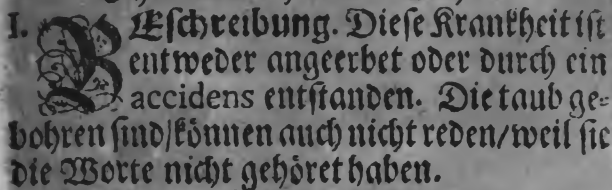 I. BEſchreibung. Dieſe Krankheit iſt
entweder angeerbet oder durch ein
accidens entſtanden. Die taub ge-
bohren ſind/können auch nicht reden/weil ſie
die Worte nicht gehöret haben.